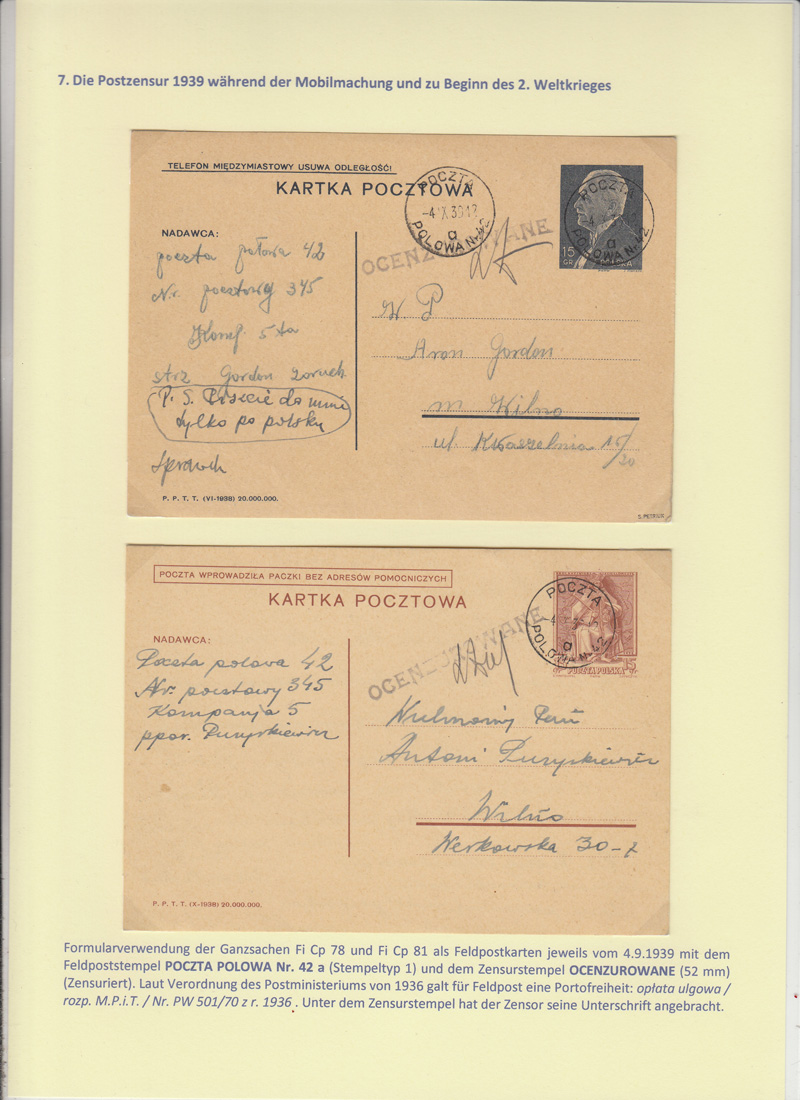 7. Die Postzensur 1939 während der Mobilmachung und zu Beginn des 2. Weltkrieges
TELEFON MIĘDZYMIASTOWY USUWA ODLEGŁOŚĆ!
KARTKA POCZTOWA
POCZTA
-4 IX 39 12
a
POLOWA Nr. 42
POCZTA
a
POLOWA Nr. 42
15
GR
OCENZUROWANE
NADAWCA:
poczta polowa 42
Nr. pocztowy 345
Komp 5ta
strz Gordon
P. S. Piszcie do mnie
tylko po polsku
W P
Aron Gordon
m Wilno
ul Kwaszelnia 15/20
P. P. T. T. (VI-1938) 20.000.000.
POCZTA WPROWADZIŁA PACZKI BEZ ADRESÓW POMOCNICZYCH
KARTKA POCZTOWA
POCZTA
a
POLOWA Nr. 42
15
GR
POCZTA POLSKA
OCENZUROWANE
NADAWCA:
Poczta polowa 42
Nr. pocztowy 345
Kompanja 5
ppor. Puzyrkiewicz
Antoni Puzyrkiewicz
Wilno
Werkowska 30-7
P. P. T. T. (X-1938) 20.000.000.
Formularverwendung der Ganzsachen Fi Cp 78 und Fi Cp 81 als Feldpostkarten jeweils vom 4.9.1939 mit dem
Feldpoststempel POCZTA POLOWA Nr. 42 a (Stempeltyp 1) und dem Zensurstempel OCENZUROWANE (52 mm)
(Zensuriert). Laut Verordnung des Postministeriums von 1936 galt für Feldpost eine Portofreiheit: opłata ulgowa /
rozp. M.P.i.T. / Nr. PW 501/70 z r. 1936 . Unter dem Zensurstempel hat der Zensor seine Unterschrift angebracht.